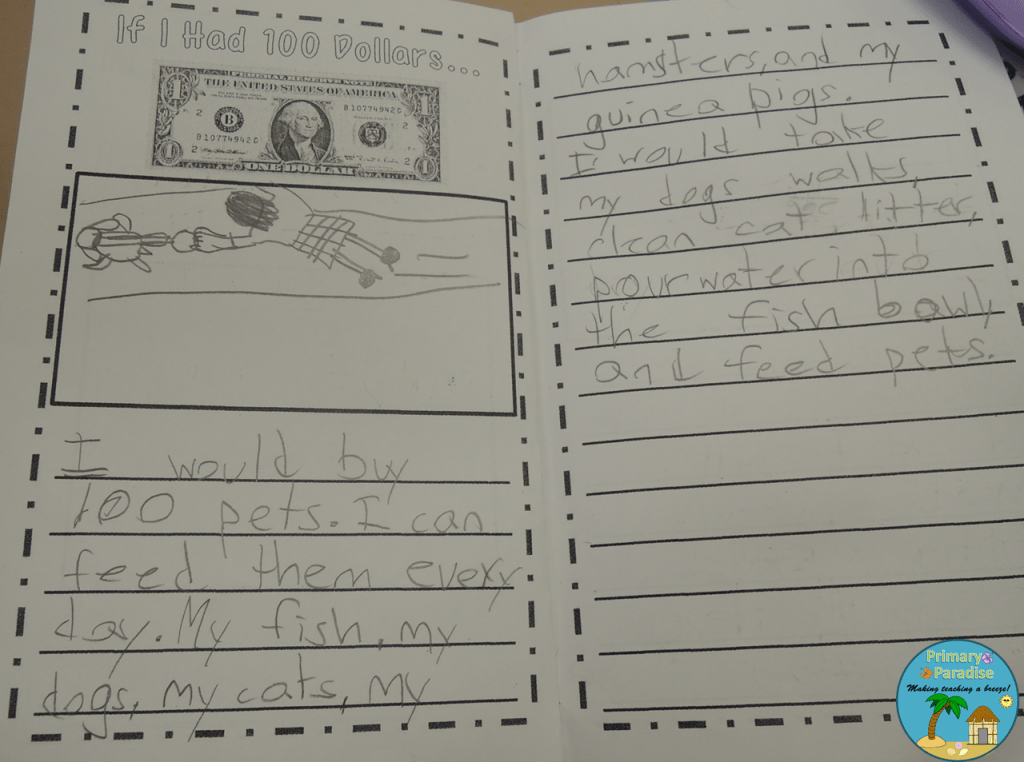 If I Had 100 Dollars...
FEDERAL RESERVE NOTE
THE UNITED STATES OF AMERICA
1
1
B 10774942 G
2
2
B
B 10774942 G
2
2
1
1
ONE DOLLAR
I would buy
100 pets. I can
feed them every
day. My fish, my
dogs, my cats, my
hamsters, and my
guinea pigs.
I would take
my dogs walks,
clean cat litter,
pour water into
the fish bowl,
and feed pets.
Primary
Paradise
Making teaching a breeze!